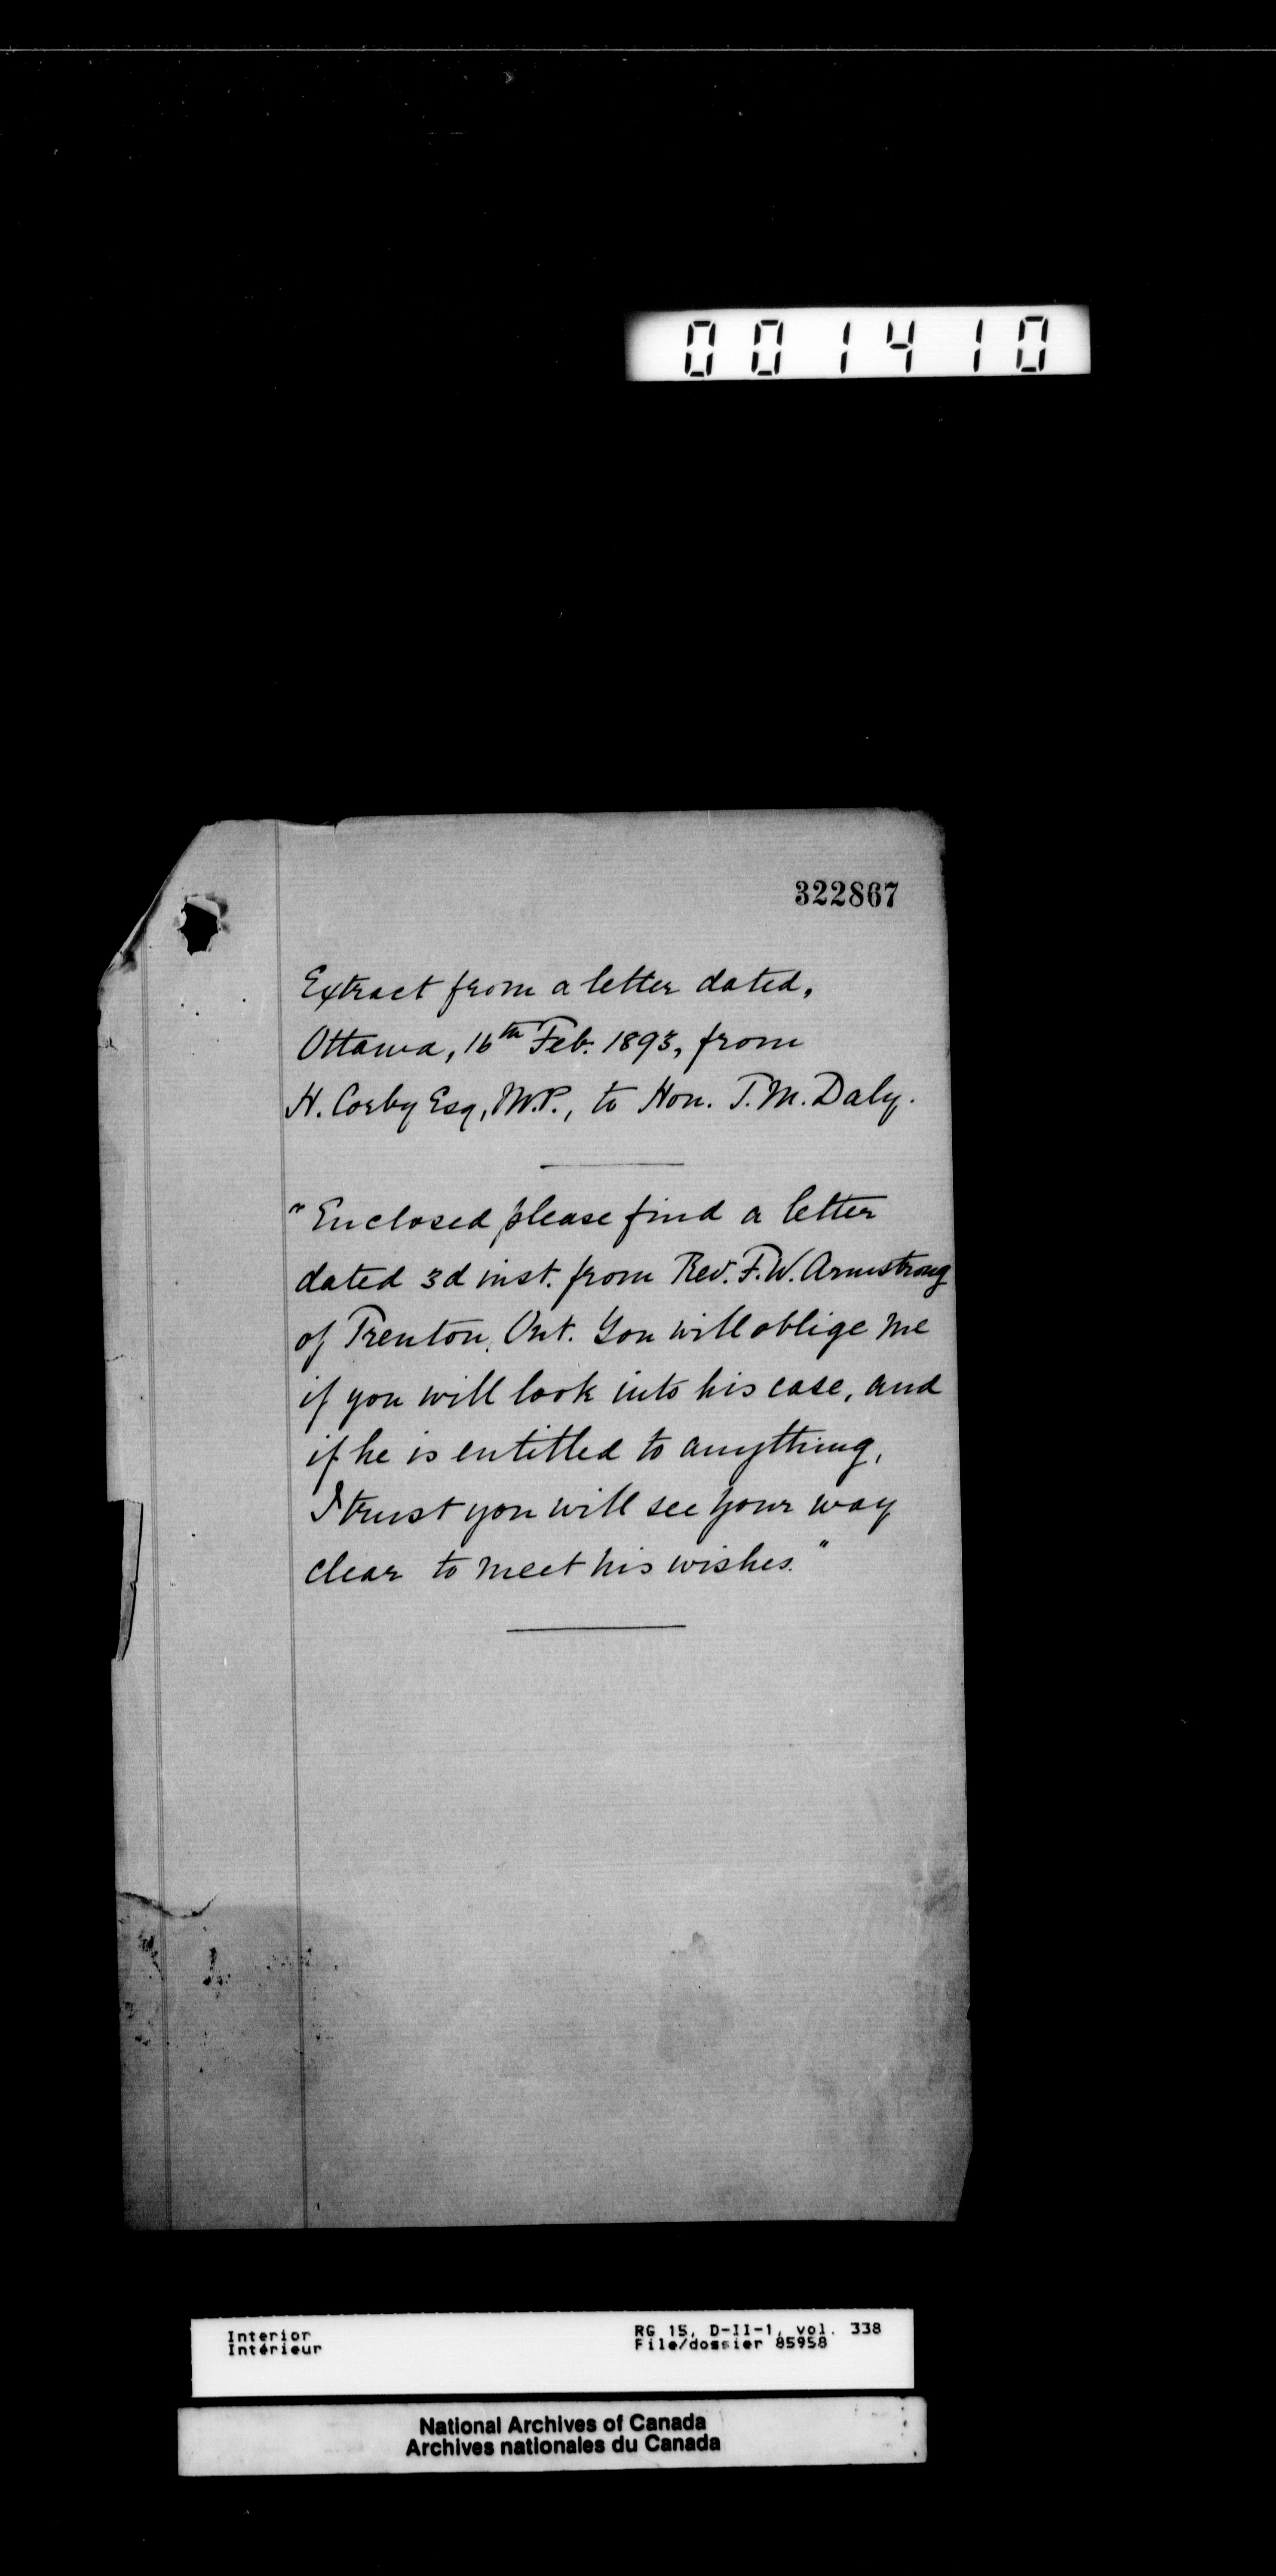 001410
322867
Extract from a letter dated,
Ottawa, 16th Feb. 1893, from
H. Corby Esq, M.P., to Hon. T.M. Daly.
"Enclosed please find a letter
dated 3d inst. from Rev. F.W. Armstrong
of Trenton, Ont. You will oblige me
if you will look into his case, and
if he is entitled to anything,
I trust you will see your way
clear to meet his wishes."
Interior RG 15, D-II-1, vol. 338
Intérieur File/dossier 85958
National Archives of Canada
Archives nationales du Canada